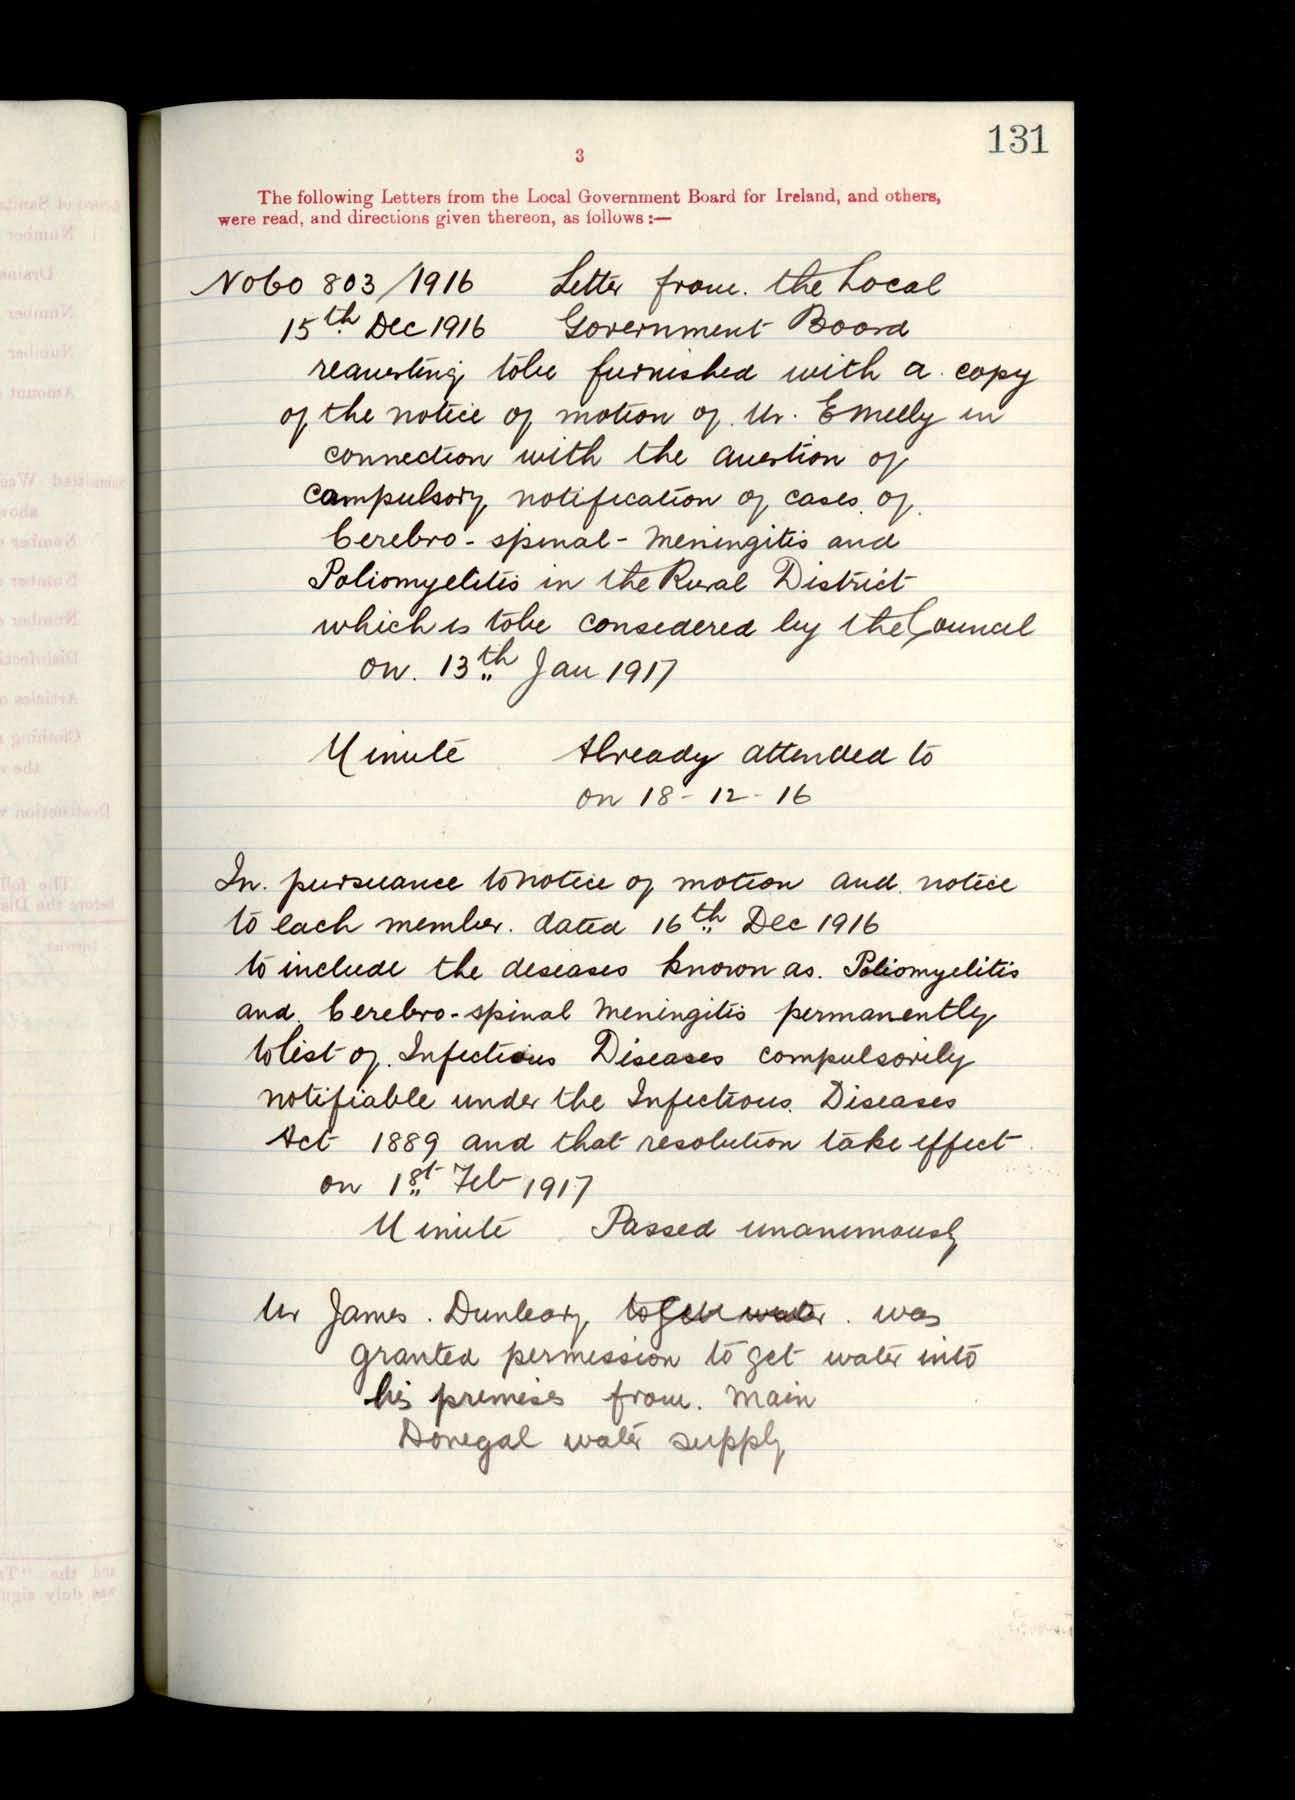 131
3
The following Letters from the Local Government Board for Ireland, and others,
were read, and directions given thereon, as follows :—
No 60 803/1916 Letter from the Local
15th Dec 1916 Government Board
requesting to be furnished with a copy
of the notice of motion of Mr. E Melly in
connection with the question of
compulsory notification of cases of
Cerebro-spinal-Meningitis and
Poliomyelitis in the Rural District
which is to be consedered by the Council
on 13th Jan 1917
Minute Already attended to
on 18-12-16
In pursuance to notice of motion and notice
to each member dated 16th Dec 1916
to include the deseases known as Poliomyelitis
and Cerebro-spinal Meningitis permanently
to list of Infectious Diseases compulsorily
notifiable under the Infectious Diseases
Act 1889 and that resolution take effect
on 1st Feb 1917
Minute Passed unanimously
Mr James Dunleavy to get water was
granted permission to get water into
his premises from Main
Donegal water supply